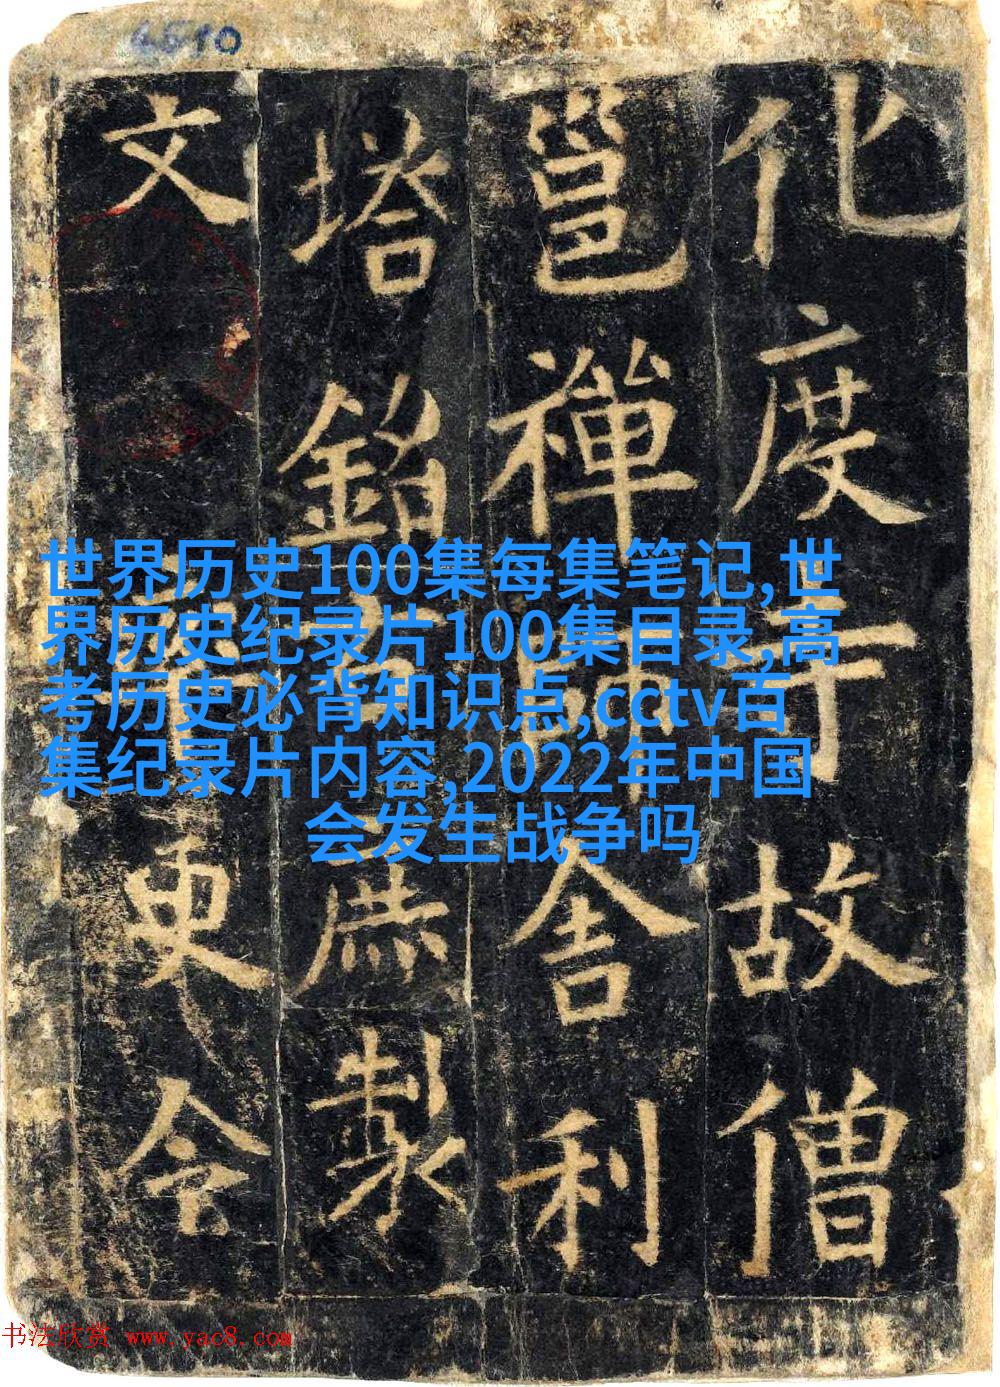 化度寺故僧
邕禪師舍利
塔銘庶製
文更令
世界历史100集每集笔记,世
界历史纪录片100集目录,高
考历史必背知识点,cctv百
集纪录片内容,2022年中国
会发生战争吗
书法欣赏 www.yac8.com